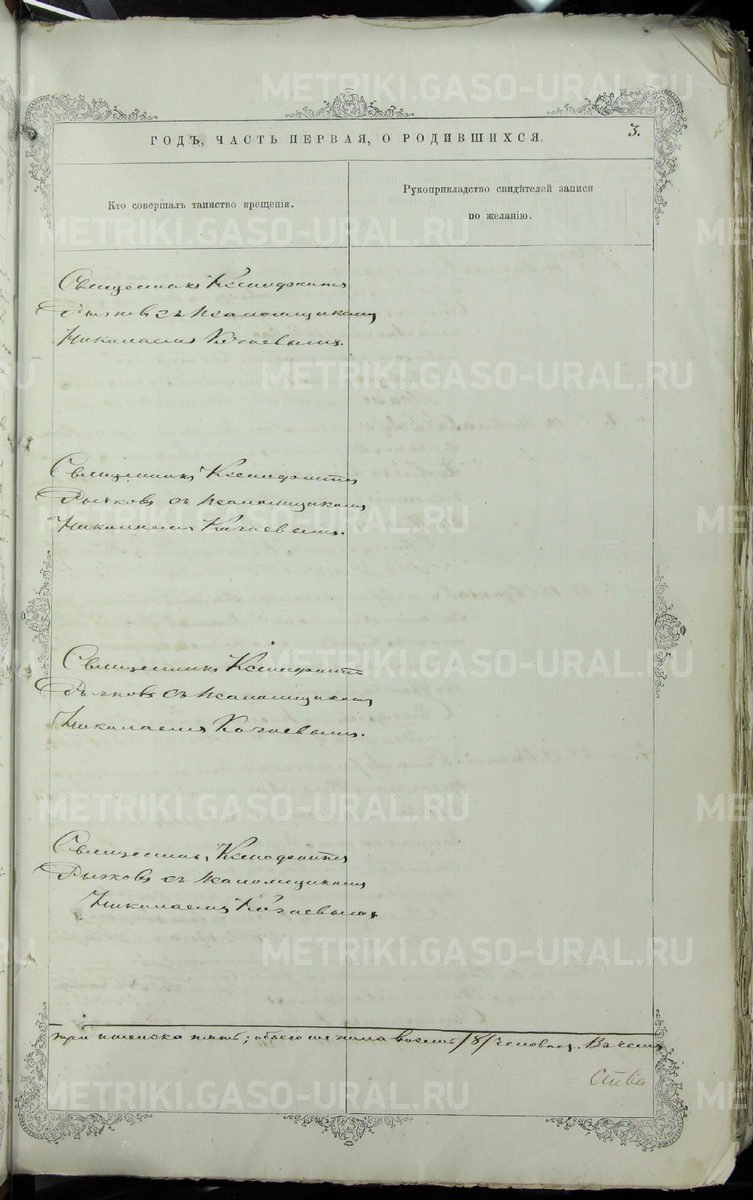 METRIKI.GASO-URAL.RU
3.
ГОДЪ, ЧАСТЬ ПЕРВАЯ, О РОДИВШИХСЯ.
Кто совершалъ таинство крещенія.
Рукоприкладство свидѣтелей записи
по желанію.
Священникъ Ксенофонтъ
Рычковъ съ псаломщикомъ
Николаемъ Кочаевымъ.
Священникъ Ксенофонтъ
Рычковъ съ псаломщикомъ
Николаемъ Кочаевымъ.
Священникъ Ксенофонтъ
Рычковъ съ псаломщикомъ
Николаемъ Кочаевымъ.
Священникъ Ксенофонтъ
Рычковъ съ псаломщикомъ
Николаемъ Кочаевымъ
три женска пять; обоего же пола восемь /8/ человѣкъ. Въ чемъ